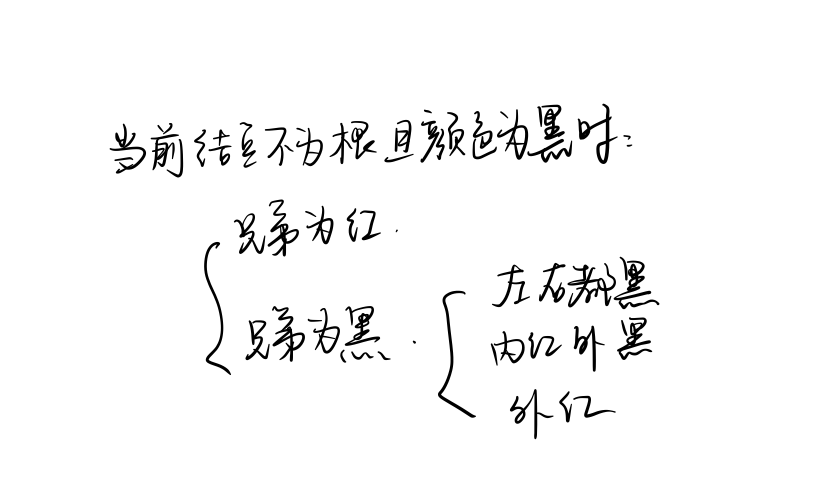 当前结点不为根且颜色为黑时:
兄弟为红.
兄弟为黑.
左右都黑
内红外黑
外红